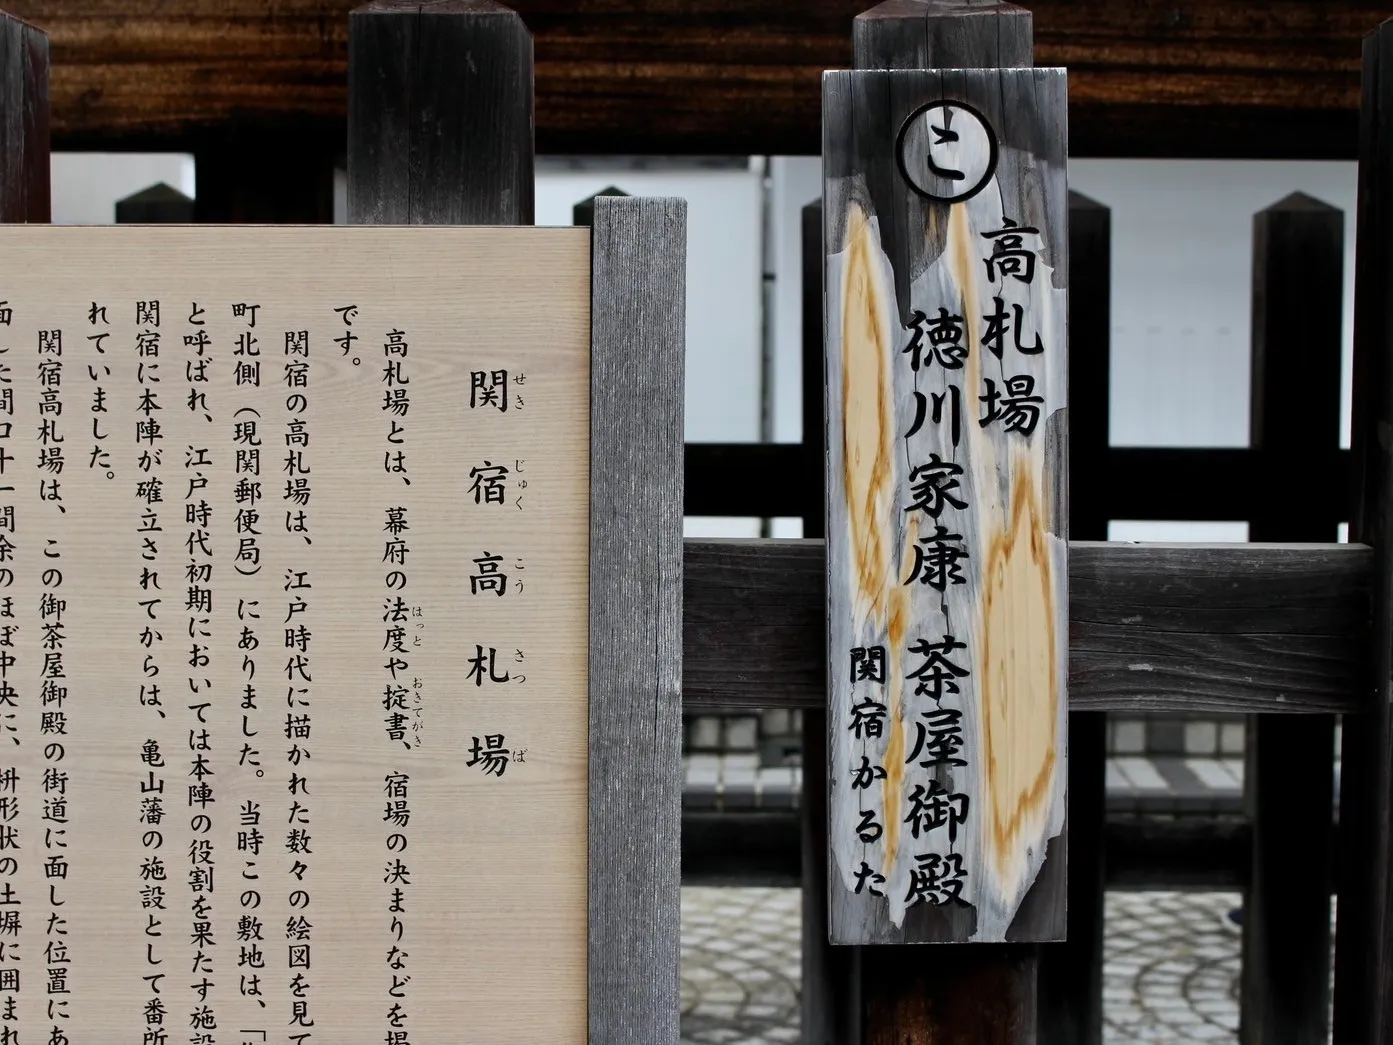 関宿高札場
せき
じゅく
こう
さつ
ば
高札場とは、幕府の法度や掟書、宿場の決まりなどを掲
はっと
おきてがき
です。
関宿の高札場は、江戸時代に描かれた数々の絵図を見て
町北側（現関郵便局）にありました。当時この敷地は、「
と呼ばれ、江戸時代初期においては本陣の役割を果たす施設
関宿に本陣が確立されてからは、亀山藩の施設として番所
れていました。
関宿高札場は、この御茶屋御殿の街道に面した位置にあ
面した間口十一間余のほぼ中央に、枡形状の土塀に囲まれ
こ
高札場
徳川家康
茶屋御殿
関宿かるた